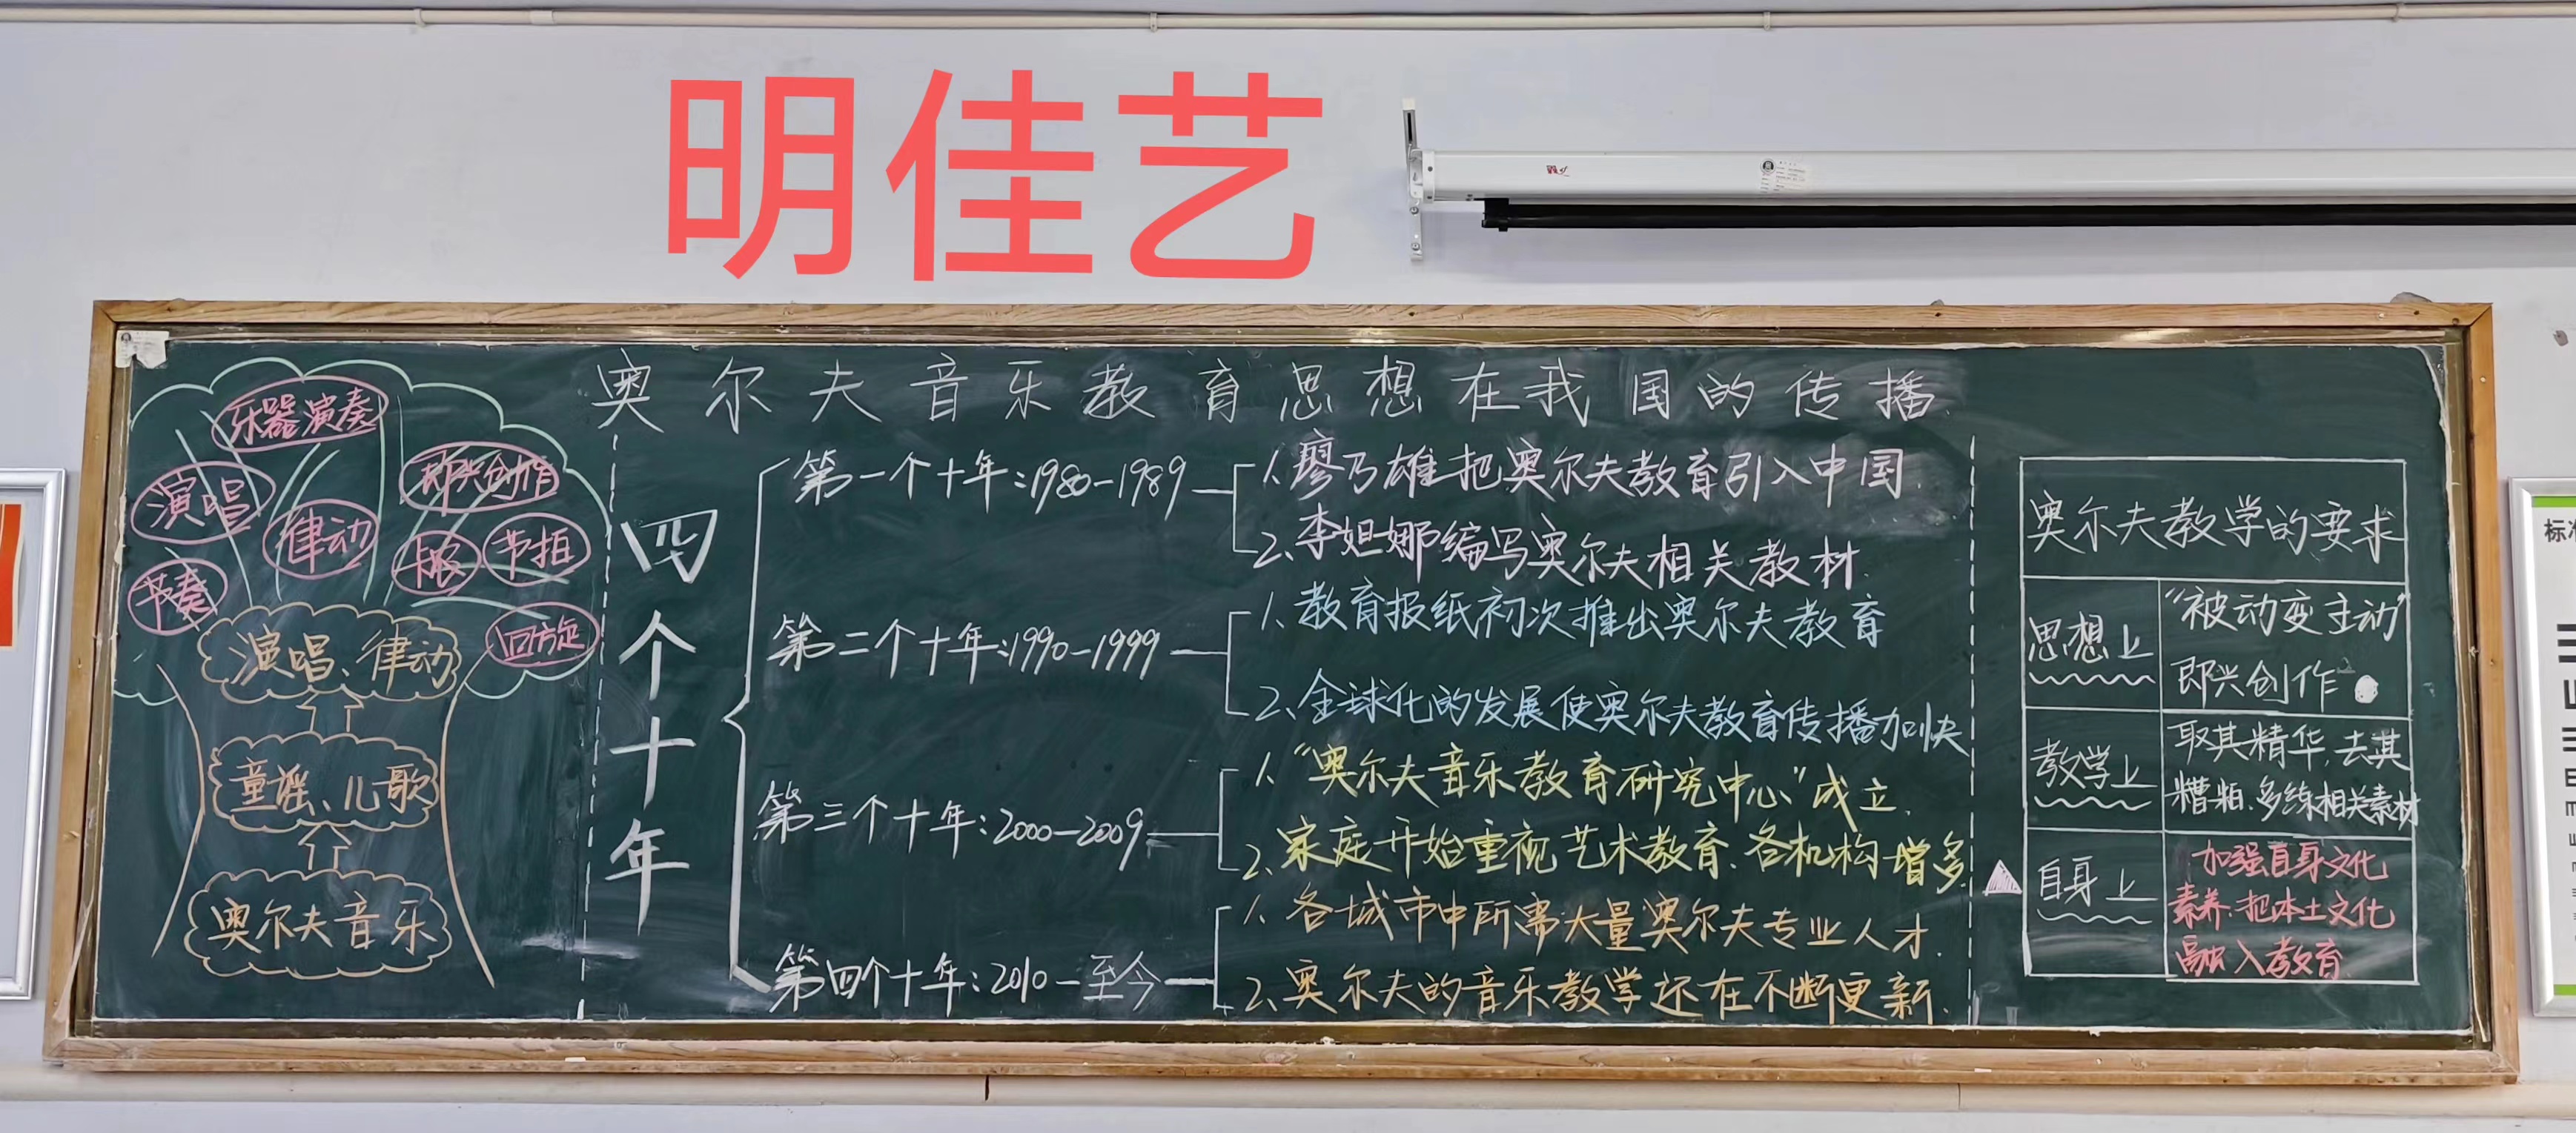 明佳艺
奥尔夫音乐教育思想在我国的传播
乐器演奏
即兴创作
演唱
律动
卡农
节拍
节奏
回旋
演唱、律动
童谣、儿歌
奥尔夫音乐
四个十年
第一个十年:1980-1989
1、廖乃雄把奥尔夫教育引入中国.
2、李妲娜编写奥尔夫相关教材.
第二个十年:1990-1999
1、教育报纸初次推出奥尔夫教育
2、全球化的发展使奥尔夫教育传播加快
第三个十年:2000-2009
1、“奥尔夫音乐教育研究中心”成立.
2、家庭开始重视艺术教育.各机构增多.
第四个十年:2010-至今
1、各城市中所需大量奥尔夫专业人才.
2、奥尔夫的音乐教学还在不断更新.
奥尔夫教学的要求
思想上
“被动变主动”
即兴创作
教学上
取其精华,去其
糟粕.多练相关素材
自身上
加强自身文化
素养.把本土文化
融入教育.